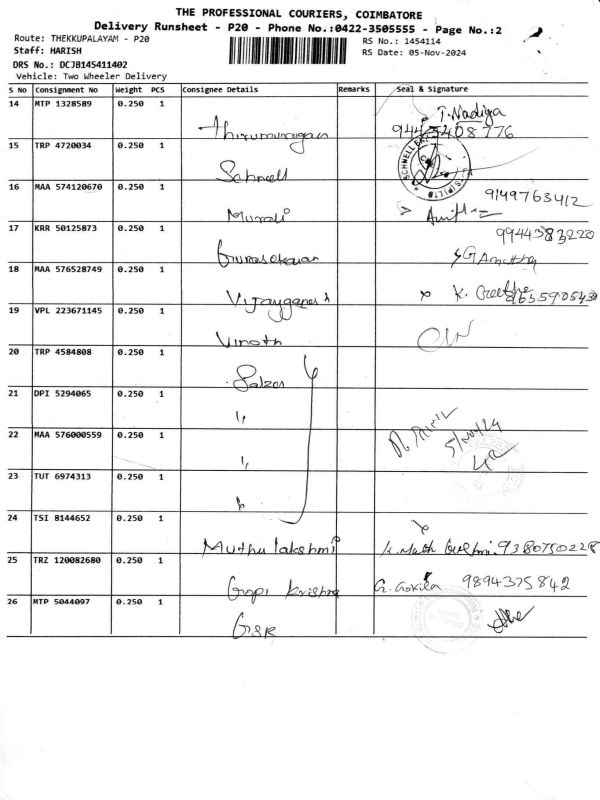 THE PROFESSIONAL COURIERS, COIMBATORE
Delivery Runsheet - P20 - Phone No.:0422-3505555 - Page No.:2
Route: THEKKUPALAYAM - P20
RS No.: 1454114
Staff: HARISH
RS Date: 05-Nov-2024
DRS No.: DCJB145411402
Vehicle: Two Wheeler Delivery
S No Consignment No Weight PCS Consignee Details Remarks Seal & Signature
14 MTP 1328589 0.250 1 Thirumurugan T. Nadiya
15 TRP 4720034 0.250 1 Schnell
16 MAA 574120670 0.250 1 Murali 9149763412
17 KRR 50125873 0.250 1
18 MAA 576528749 0.250 1 K.
19 VPL 223671145 0.250 1 Vinoth
20 TRP 4584808 0.250 1 Salzer
21 DPI 5294065 0.250 1 "
22 MAA 576000559 0.250 1 "
23 TUT 6974313 0.250 1 "
24 TSI 8144652 0.250 1 Muthu lakshmi
25 TRZ 120082680 0.250 1 Gopi Krishna G. Gokila 9894375842
26 MTP 5044097 0.250 1 GSR